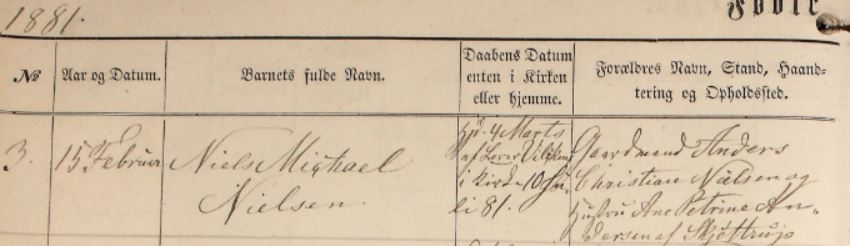 1881.
Fødte
No
Aar og Datum.
Barnets fulde Navn.
Daabens Datum
enten i Kirken
eller hjemme.
Forældres Navn, Stand, Haand-
tering og Opholdssted.
3.
15 Februar
Niels Michael
Nielsen.
Hjd. 4 Marts
af Lærer
i Kirke 10 Ju-
li 81.
Gaardmand Anders
Christian Nielsen og
Hustru Ane Petrine An-
dersen af Skjøttrup